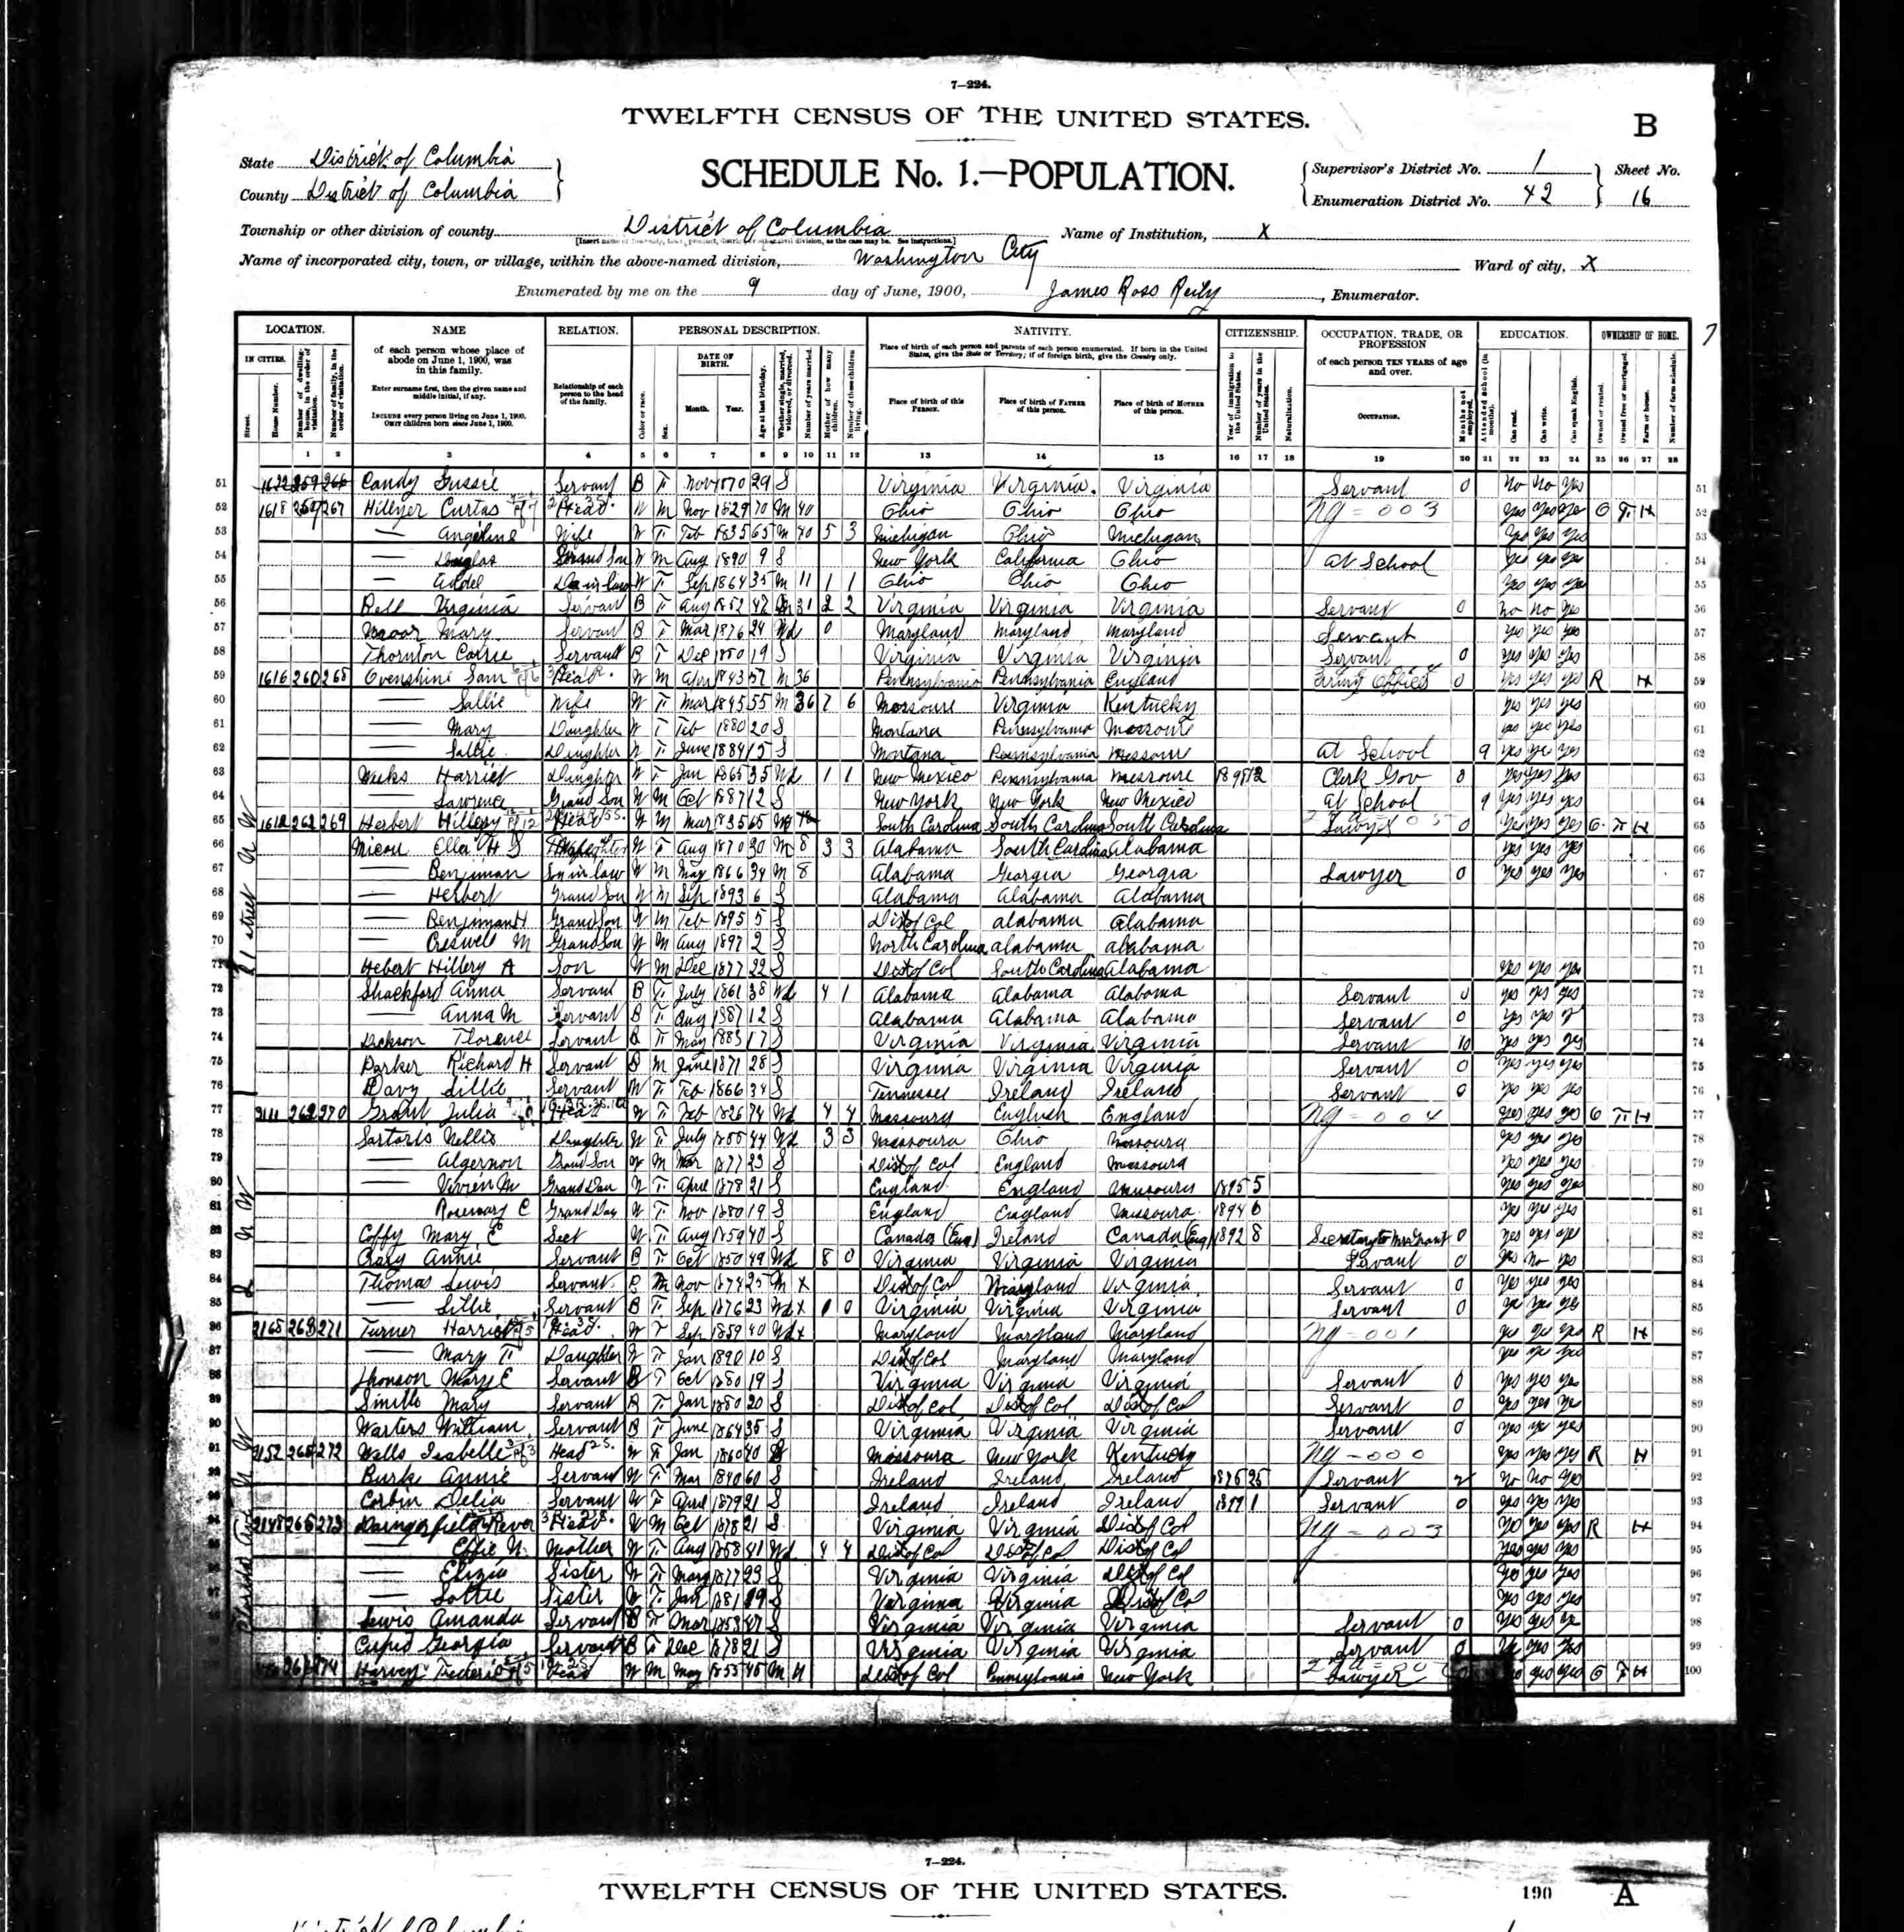 7—224.
TWELFTH CENSUS OF THE UNITED STATES.
B
State District of Columbia
County District of Columbia
SCHEDULE No. 1.—POPULATION.
Supervisor's District No. 1
Enumeration District No. 42
Sheet No. 16
Township or other division of county District of Columbia Name of Institution, X
Name of incorporated city, town, or village, within the above-named division, Washington City Ward of city, X
Enumerated by me on the 9 day of June, 1900, James Ross Reily, Enumerator.
LOCATION. NAME RELATION. PERSONAL DESCRIPTION. NATIVITY. CITIZENSHIP. OCCUPATION, TRADE, OR PROFESSION EDUCATION. OWNERSHIP OF HOME.
IN CITIES. of each person whose place of abode on June 1, 1900, was in this family.
Enter surname first, then the given name and middle initial, if any.
INCLUDE every person living on June 1, 1900. OMIT children born since June 1, 1900.
Relationship of each person to the head of the family.
DATE OF BIRTH. Month. Year.
Place of birth of each person and parents of each person enumerated. If born in the United States, give the State or Territory; if of foreign birth, give the Country only.
Place of birth of this PERSON. Place of birth of FATHER of this person. Place of birth of MOTHER of this person.
of each person TEN YEARS of age and over.
OCCUPATION.
1 2 3 4 5 6 7 8 9 10 11 12 13 14 15 16 17 18 19 20 21 22 23 24 25 26 27 28
51 1622 259 266 Candy Gussie Servant B F Nov 1870 29 S Virginia Virginia Virginia Servant 0 No No yes 51
52 1618 259 267 Hillyer Curtas Head W M Nov 1829 70 M 40 Ohio Ohio Ohio yes yes yes O F H 52
53 — Angeline Wife W F Feb 1835 65 M 40 5 3 Michigan Ohio Michigan yes yes yes 53
54 — Douglas Grand Son W M Aug 1890 9 S New York California Ohio At School yes yes yes 54
55 — Addel Da in law W F Sep 1864 35 M 11 1 1 Ohio Ohio Ohio yes yes yes 55
56 Bell Virginia Servant B F Aug 1852 47 M 31 2 2 Virginia Virginia Virginia Servant 0 no no yes 56
57 Mary Servant B F Mar 1876 24 Wd 0 Maryland Maryland Maryland Servant yes yes yes 57
58 Thornton Carrie Servant B F Dec 1880 19 S Virginia Virginia Virginia Servant 0 yes yes yes 58
59 1616 260 268 Ovenshine Sam Head W M Apr 1843 57 M 36 Pennsylvania Pennsylvania England Army Officer 0 yes yes yes R H 59
60 — Sallie Wife W F Mar 1845 55 M 36 7 6 Missoure Virginia Kentucky yes yes yes 60
61 — Mary Daughter W F Feb 1880 20 S Montana Pennsylvania Missoure yes yes yes 61
62 — Sallie Daughter W F June 1884 15 S Montana Pennsylvania Missoure At School 9 yes yes yes 62
63 Weeks Harriet Daughter W F Jan 1865 35 Wd 1 1 New Mexico Pennsylvania Missoure 1898 2 Clerk Gov 0 yes yes yes 63
64 — Lawrence Grand Son W M Oct 1887 12 S New York New York New Mexico At School 9 yes yes yes 64
65 1612 262 269 Herbert Hillery Head W M Mar 1835 65 South Carolina South Carolina South Carolina Lawyer 0 yes yes yes O F H 65
66 Micou Ella H S Daughter W F Aug 1870 30 M 8 3 3 Alabama South Carolina Alabama yes yes yes 66
67 — Benjiman Son in law W M May 1866 34 M 8 Alabama Georgia Georgia Lawyer 0 yes yes yes 67
68 — Herbert Grand Son W M Sep 1893 6 S Alabama Alabama Alabama 68
69 — Benjiman H Grand Son W M Feb 1895 5 S Dist of Col Alabama Alabama 69
70 — Creswell M Grand Son W M Aug 1897 2 S North Carolina Alabama Alabama 70
71 Hebert Hillery A Son W M Dec 1877 22 S Dist of Col South Carolina Alabama yes yes yes 71
72 Shackford Anna Servant B F July 1861 38 Wd 4 1 Alabama Alabama Alabama Servant 0 yes yes yes 72
73 — Anna M Servant B F Aug 1887 12 S Alabama Alabama Alabama Servant 0 yes yes 73
74 Dickson Florence Servant B F May 1883 17 S Virginia Virginia Virginia Servant 10 yes yes yes 74
75 Parker Richard H Servant B M June 1871 28 S Virginia Virginia Virginia Servant 0 yes yes yes 75
76 Davy Lillie Servant W F Feb 1866 34 S Tennessee Ireland Ireland Servant 0 yes yes yes 76
77 2111 262 270 Grant Julia Head W F Feb 1826 74 Wd 4 4 Missoury English England yes yes yes O F H 77
78 Sartoris Nellie Daughter W F July 1855 44 Wd 3 3 Missoura Ohio Missoura yes yes yes 78
79 — Algernon Grand Son W M Mar 1877 23 S Dist of Col England Missoura yes yes yes 79
80 — Vivien M Grand Dau W F April 1878 21 S England England Missoura 1895 5 yes yes yes 80
81 Rosemary C Grand Dau W F Nov 1880 19 S England England Missoura 1894 6 yes yes yes 81
82 Coffy Mary E Sect W F Aug 1859 40 S Canada (Eng) Ireland Canada (Eng) 1892 8 Secretary to Mrs Grant 0 yes yes yes 82
83 Cary Annie Servant B F Oct 1850 49 Wd 8 0 Virginia Virginia Virginia Servant 0 yes no yes 83
84 Thomas Lewis Servant B M Nov 1874 25 M X Dist of Col Maryland Virginia Servant 0 yes yes yes 84
85 — Lillie Servant B F Sep 1876 23 0 Virginia Virginia Virginia Servant 0 yes yes yes 85
86 2165 263 271 Turner Harriet Head W F Sep 1859 40 Wd x Maryland Maryland Maryland yes yes yes R H 86
87 — Mary F Daughter W F Jan 1890 10 S Dist of Col Maryland Maryland yes yes yes 87
88 Jhonson Mary E Servant B F Oct 1880 19 S Virginia Virginia Virginia Servant 0 yes yes yes 88
89 Mary Servant B F Jan 1880 20 S Dist of Col Dist of Col Dist of Col Servant 0 yes yes yes 89
90 Warters William Servant B June 1864 35 S Virginia Virginia Virginia Servant 0 yes yes yes 90
91 2152 272 Wells Isabelle Head W F Jan 1860 40 S Missoura New York Kentucky yes yes yes R H 91
92 Burke Annie Servant W F Mar 1840 60 S Ireland Ireland Ireland 1875 25 Servant 2 no no yes 92
93 Corbin Delia Servant W F April 1879 21 S Ireland Ireland Ireland 1899 1 Servant 0 yes yes yes 93
94 2148 265 273 Daingerfield Head W M Oct 1878 21 S Virginia Virginia Dist of Col yes yes R H 94
95 — Effie N. Mother W F Aug 1858 41 Wd 4 4 Dist of Col Dist of Col Dist of Col yes yes yes 95
96 — Sister W F 1877 23 S Virginia Virginia Dist of Col yes yes yes 96
97 — Lottie Sister W F Jan 1881 19 S Virginia Virginia Dist of Col yes yes yes 97
98 Lewis Amanda Servant B F Mar 1853 47 S Virginia Virginia Virginia Servant 0 yes yes 98
99 Cupid Georgia Servant B F Dec 1878 21 S Virginia Virginia Virginia Servant 0 yes yes 99
Harvey Head W M May 1855 45 M 11 Dist of Col Pennsylvania New York Lawyer yes yes O F H 100
7—224.
TWELFTH CENSUS OF THE UNITED STATES.
190
A